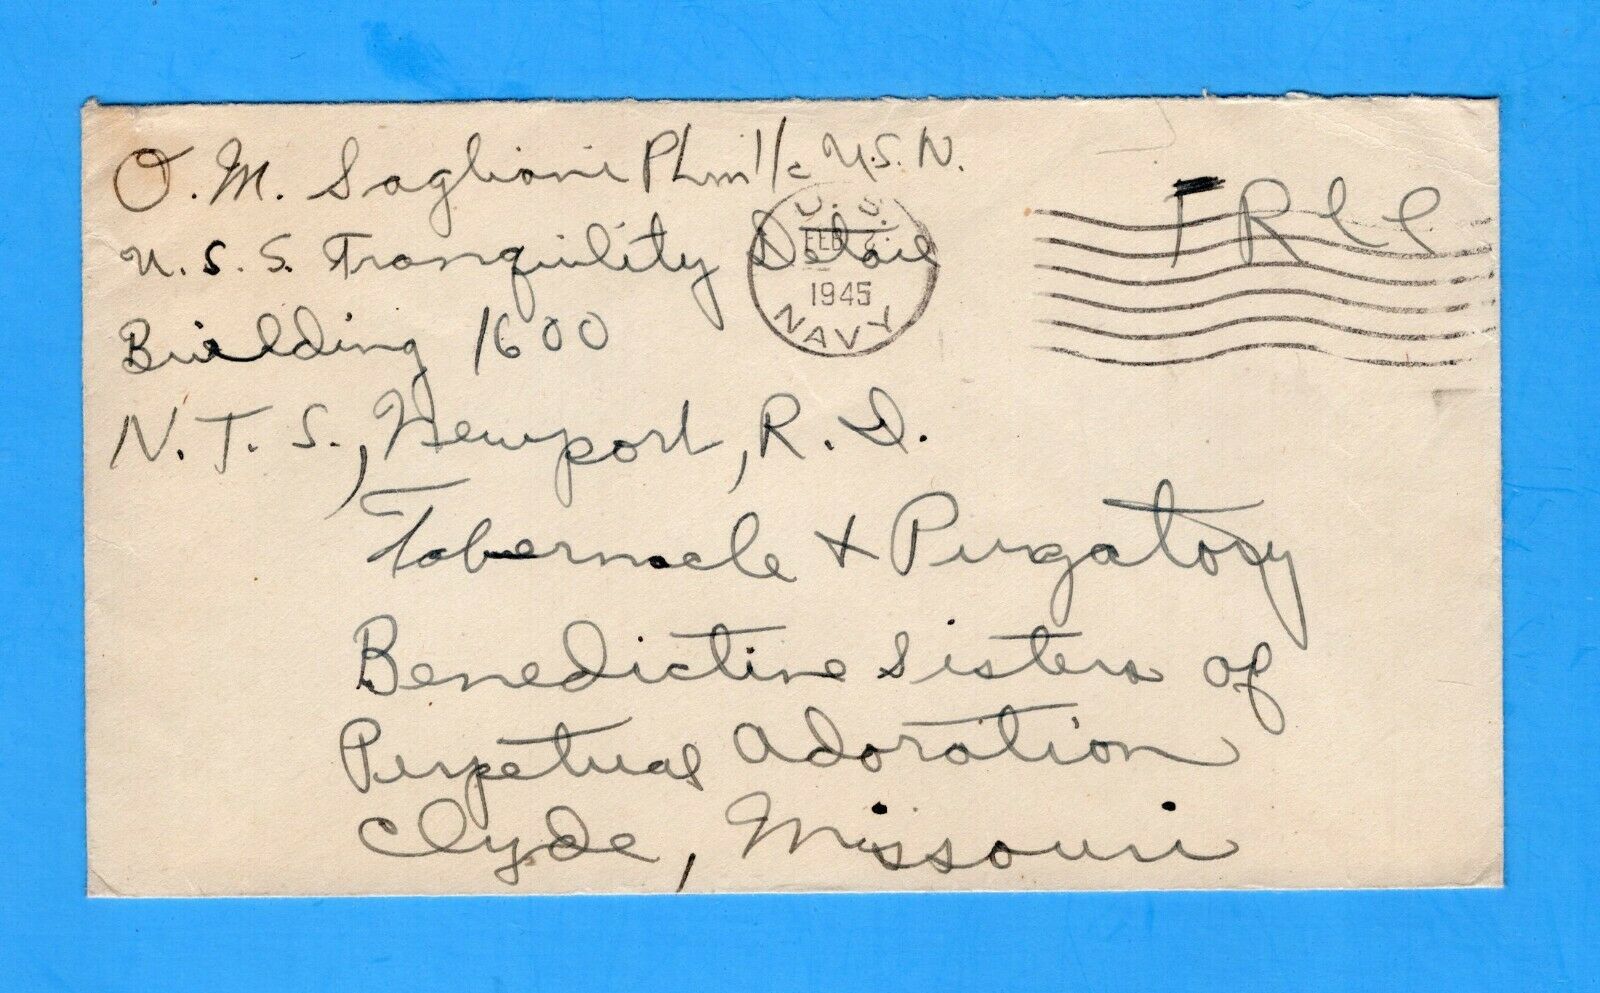 O. M. Saglioni Phm 1/c U.S.N.
U.S.S. Tranquility Detail
Building 1600
N.T.S., Newport, R.I.
U. S.
FEB
1945
NAVY
FREE
Tabernacle & Purgatory
Benedictine Sisters of
Perpetual Adoration
Clyde, Missouri